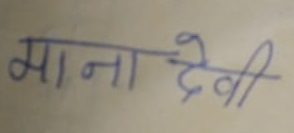 माना देवी